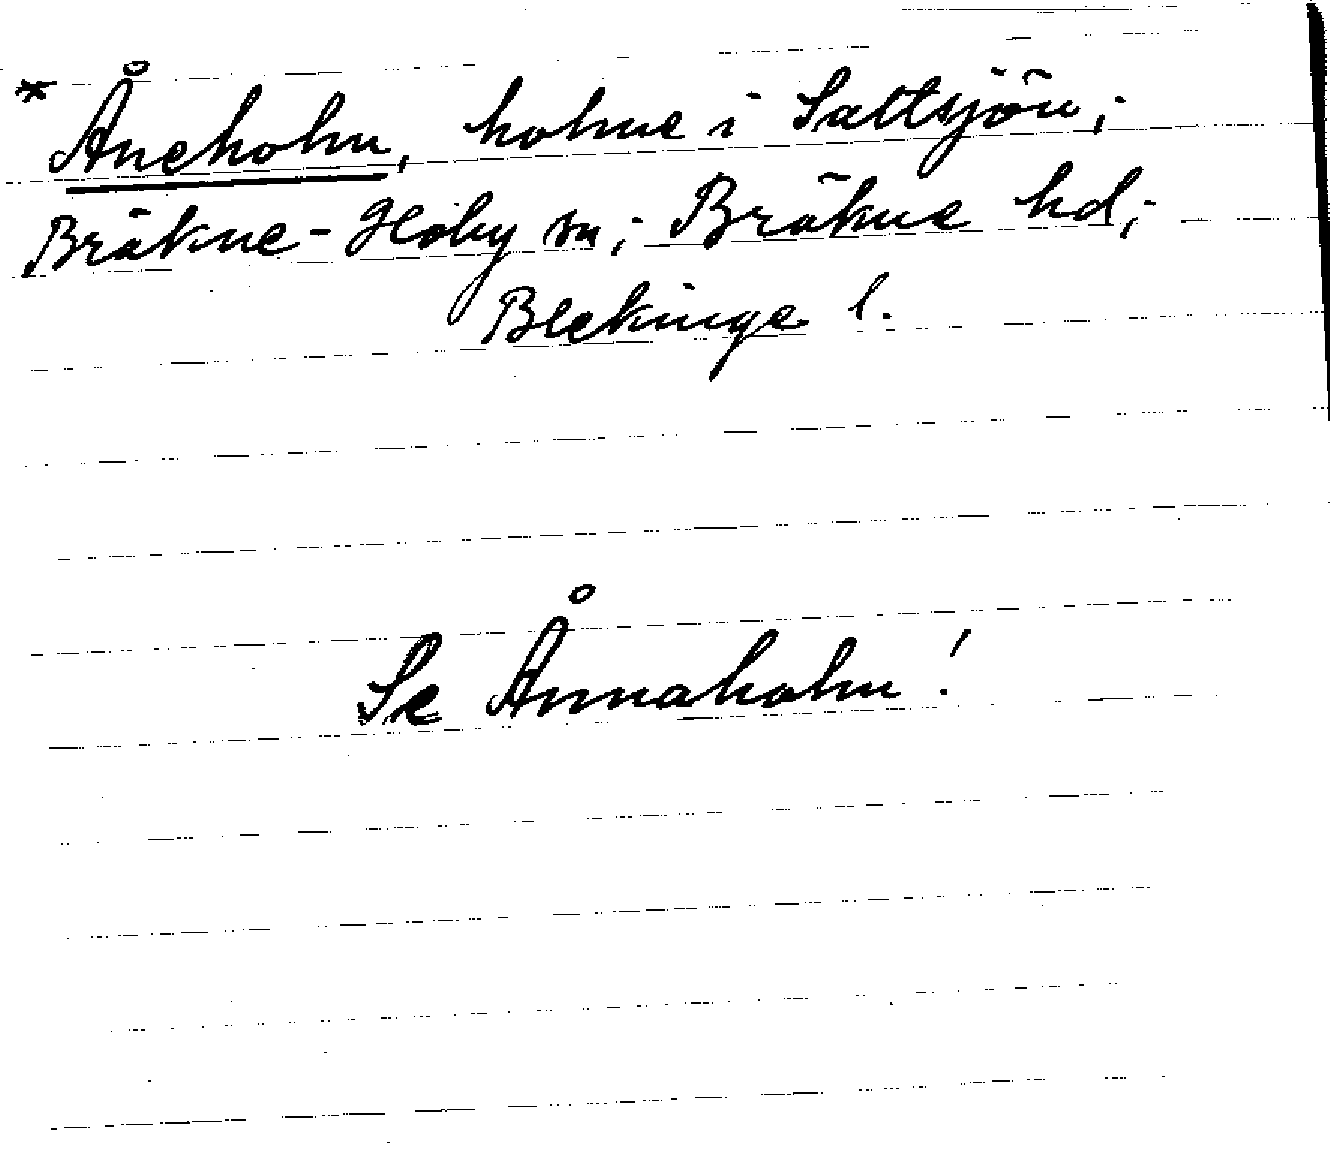 * Åneholm, holme i Saltsjön;
Bräkne-Hoby sn; Bräkne hd;
Blekinge l.
Se Ånnaholm!